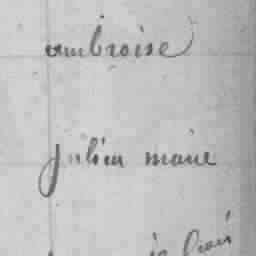 ambroise
julien marie